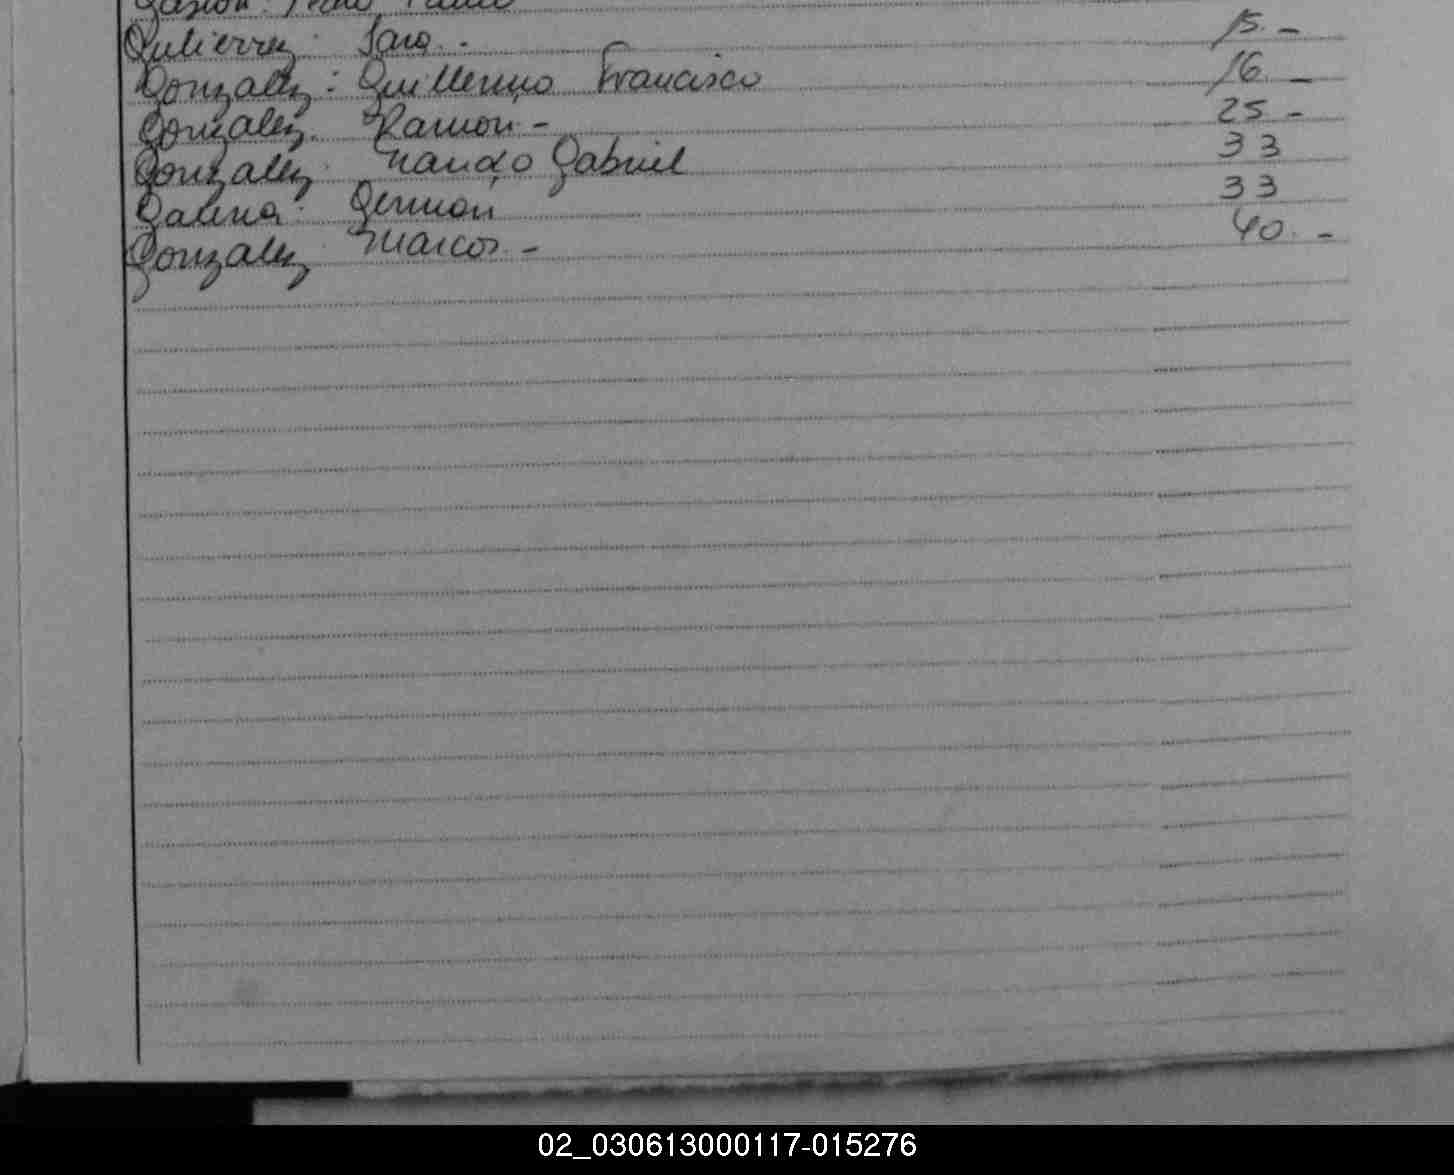 Gutierrez. Sara. - 15. -
Gonzalez: Guillermo Francisco 16. -
Gonzalez. Ramon - 25 -
Gonzalez. Gabriel 33
German 33
Gonzalez Marcos - 40. -
02_030613000117-015276